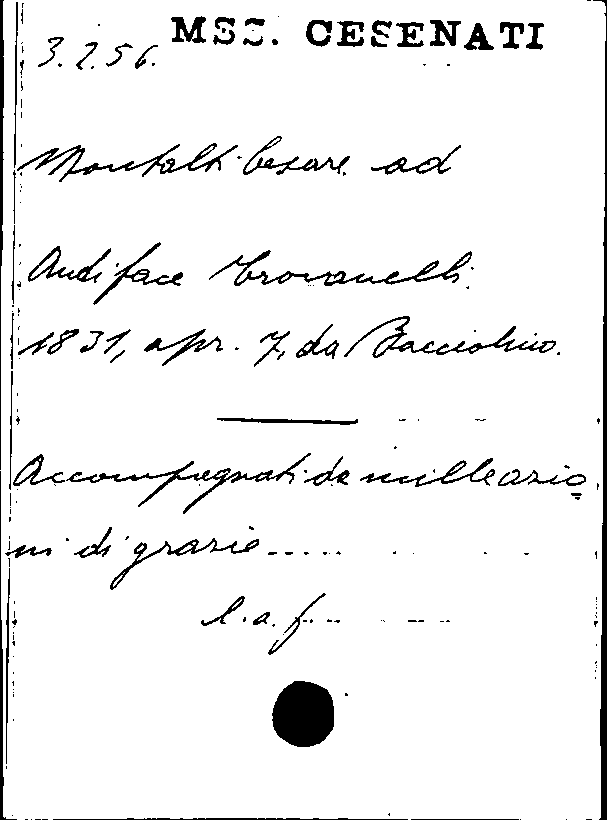 MSS. CESENATI
3.2.56.
Montalti Cesare ad
Audiface Trovanelli.
1831, apr. 7, da Bacciolino.
Accompagnati da mille azio
ni di grazie.....
l.a.f...